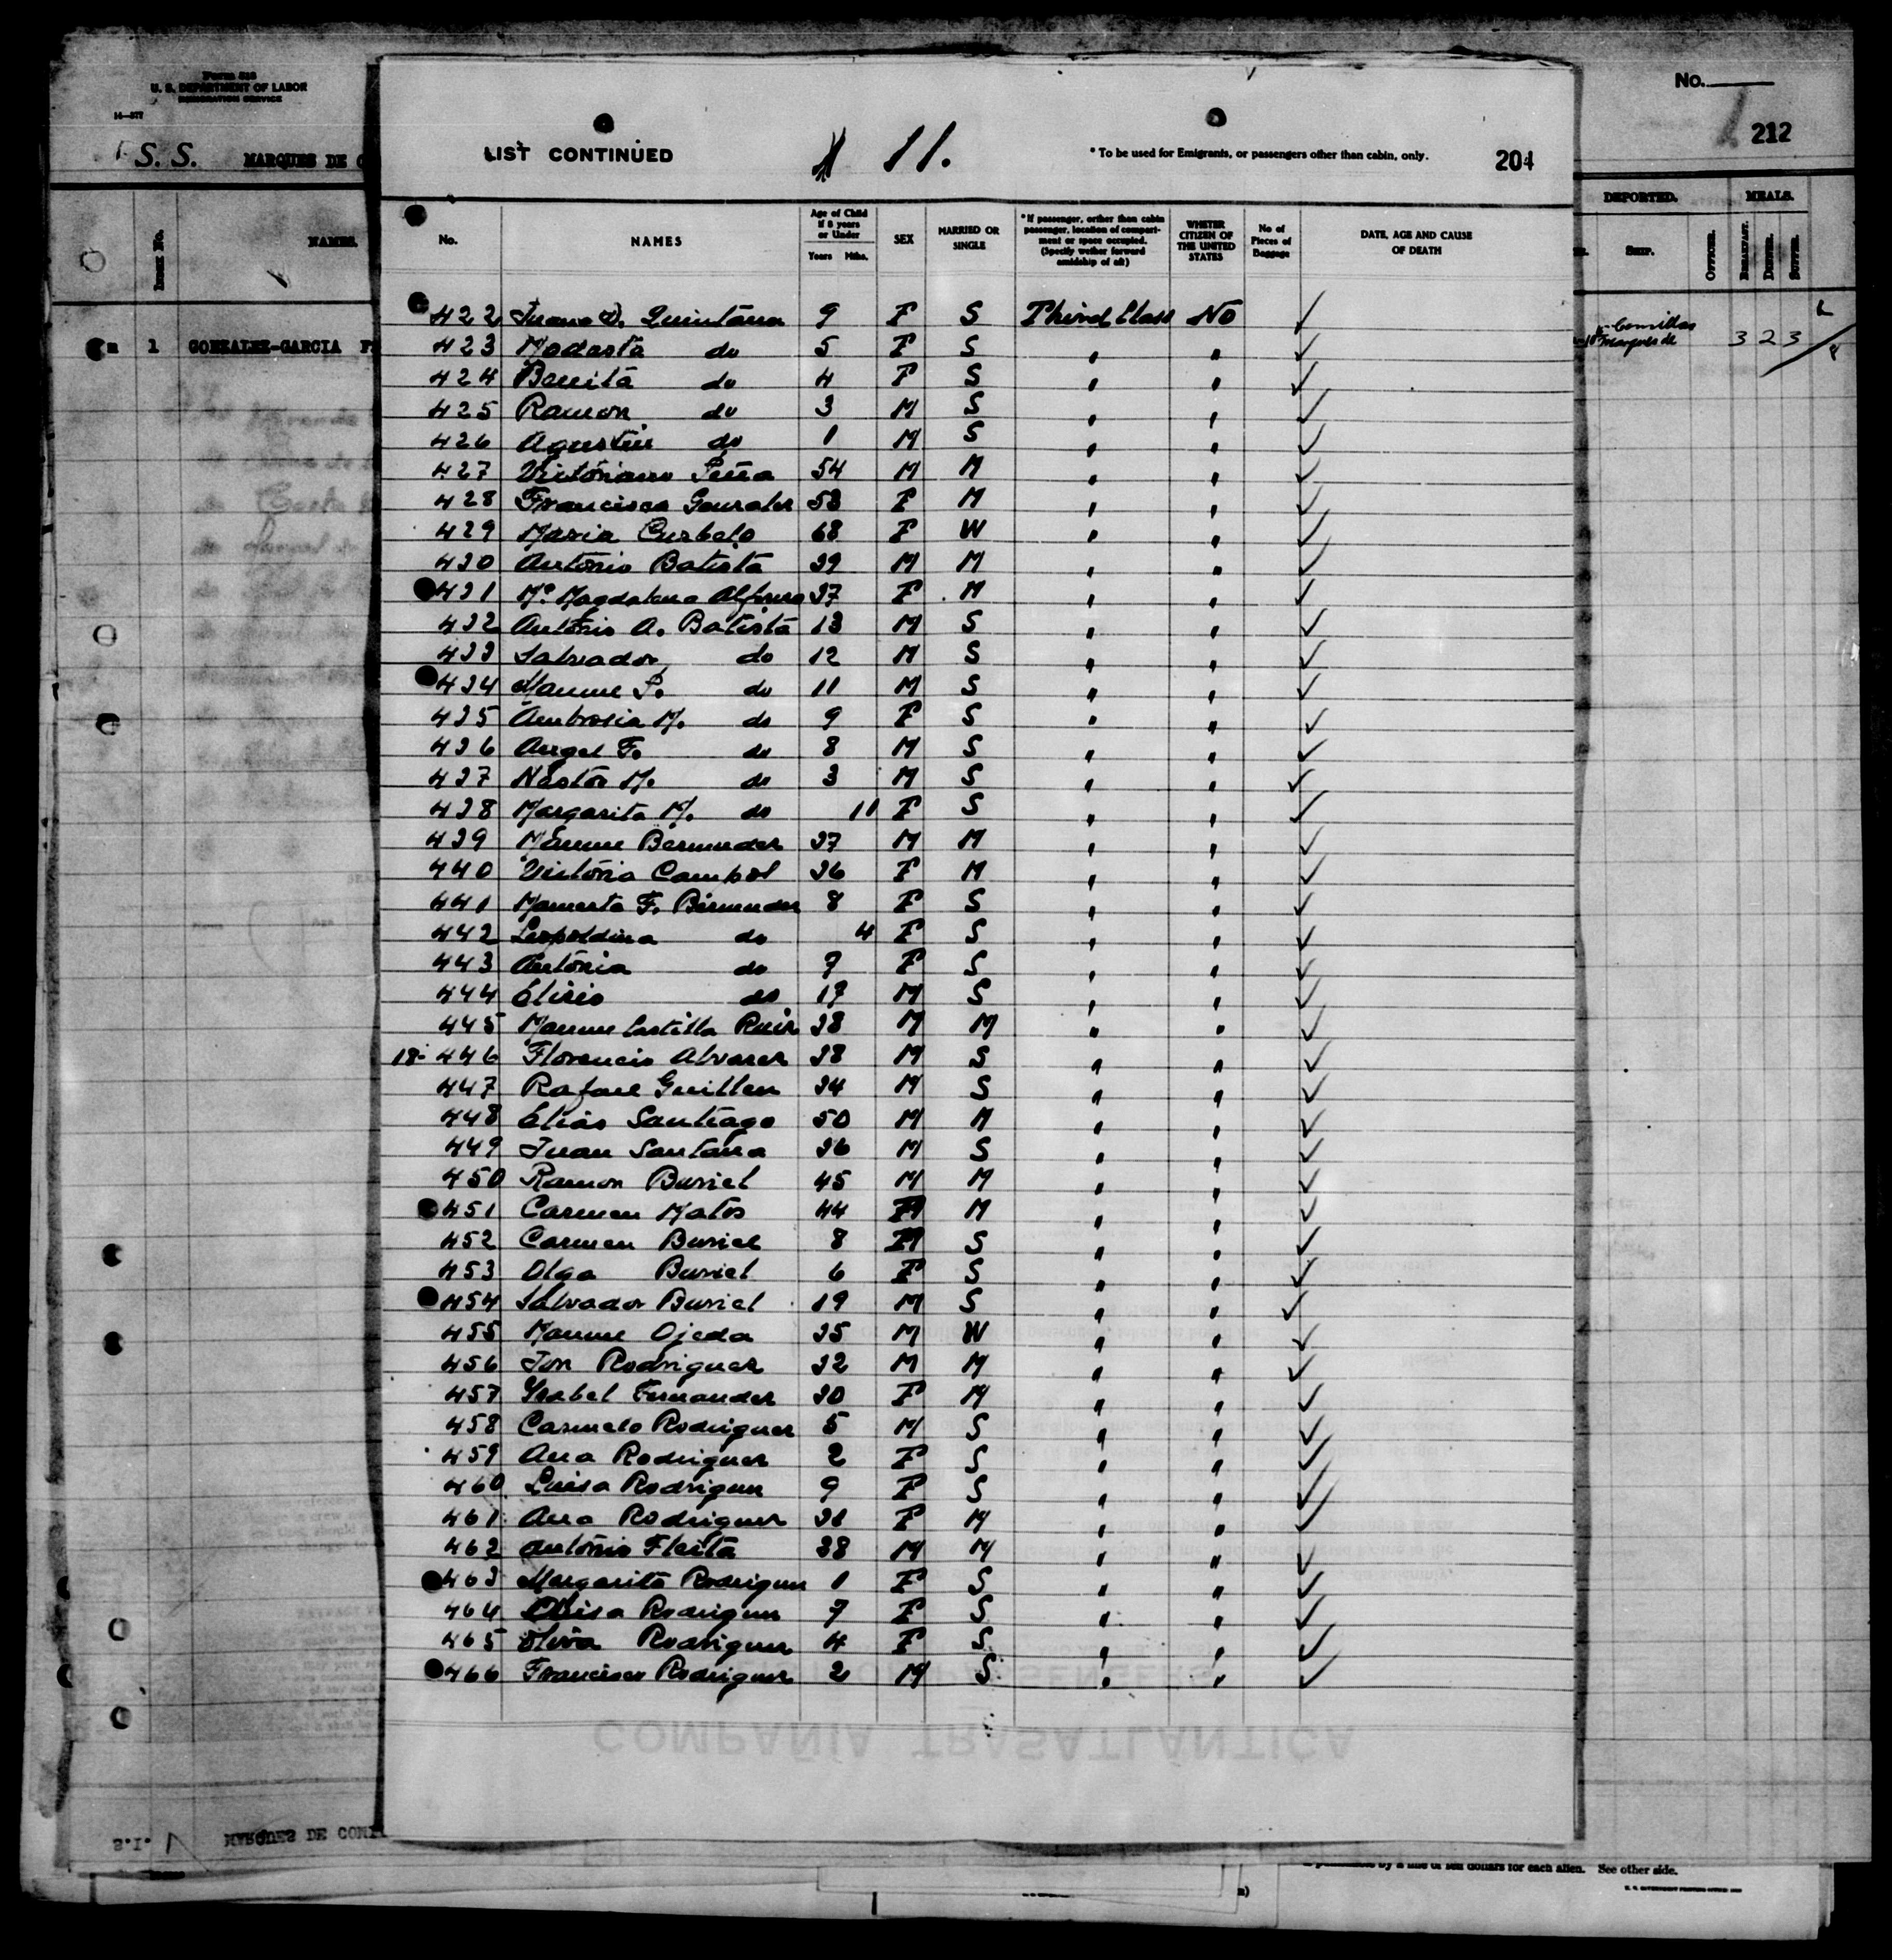 Form 518
U. S. DEPARTMENT OF LABOR
IMMIGRATION SERVICE
14—377
S. S. MARQUES DE C
INDEX No.
NAMES.
1 GONZALEZ-GARCIA F
No.
212
DEPORTED.
MEALS.
SHIP.
OFFICER.
BREAKFAST.
DINNER.
SUPPER.
Comillas
Marques de
3 2 3
LIST CONTINUED
11.
* To be used for Emigrants, or passengers other than cabin, only.
204
No.
NAMES
Age of Child if 8 years or Under
Years Mths.
SEX
MARRIED OR SINGLE
* If passenger, orther than cabin passenger, location of compartment or space occupied. (Specify wether forward amidship of aft)
WHETER CITIZEN OF THE UNITED STATES
No of Pieces of Baggage
DATE, AGE AND CAUSE OF DEATH
422 Juana D. Quintana 9 F S Third Class No ✓
423 Modasta do 5 F S " " ✓
424 Benita do 4 F S " " ✓
425 Ramon do 3 M S " " ✓
426 Agustin do 1 M S " " ✓
427 Victoriano Peña 54 M M " " ✓
428 Francisca Gonzales 53 F M " " ✓
429 Maria Curbelo 68 F W " " ✓
430 Antonio Batista 39 M M " " ✓
431 Mª Magdalena Alfonso 37 F M " " ✓
432 Antonio A. Batista 13 M S " " ✓
433 Salvador do 12 M S " " ✓
434 Manuel P. do 11 M S " " ✓
435 Ambrosia M. do 9 F S " " ✓
436 Angel F. do 8 M S " " ✓
437 Nestor M. do 3 M S " " ✓
438 Margarita M. do 11 F S " " ✓
439 Manuel Bermudez 37 M M " " ✓
440 Victoria Campol 36 F M " " ✓
441 Mamerta F. Bermudez 8 F S " " ✓
442 Leopoldina do 4 F S " " ✓
443 Antonia do 7 F S " " ✓
444 Elisio do 17 M S " " ✓
445 Manuel Castilla Ruiz 38 M M " " ✓
18- 446 Florencio Alvarez 38 M S " " ✓
447 Rafael Guillen 34 M S " " ✓
448 Elias Santiago 50 M M " " ✓
449 Juan Santana 36 M S " " ✓
450 Ramon Buriel 45 M M " " ✓
451 Carmen Matos 44 F M " " ✓
452 Carmen Buriel 8 F S " " ✓
453 Olga Buriel 6 F S " " ✓
454 Salvador Buriel 19 M S " " ✓
455 Manuel Ojeda 35 M W " " ✓
456 Jon Rodriguez 32 M M " " ✓
457 Ysabel Fernandez 30 F M " " ✓
458 Carmelo Rodriguez 5 M S " " ✓
459 Ana Rodriguez 2 F S " " ✓
460 Luisa Rodriguez 9 F S " " ✓
461 Ana Rodriguez 31 F M " " ✓
462 Antonio Fleita 38 M M " " ✓
463 Margarita Rodriguez 1 F S " " ✓
464 Rodriguez 7 F S " " ✓
465 Rodriguez 4 F S " " ✓
466 Francisco Rodriguez 2 M S " " ✓
COMPAÑIA TRASATLANTICA
S.I.
MARQUES DE COMI
by a fine of ten dollars for each alien. See other side.